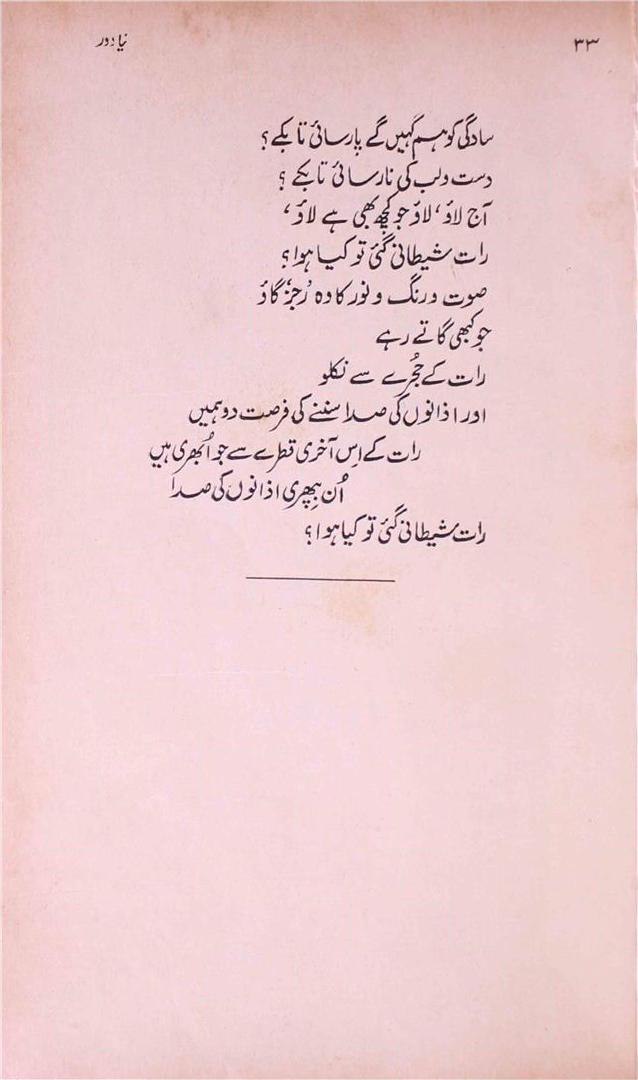 ۳۳
نیا دور
سادگی کو ہم کہیں گے پارسائی تا بکے؟
دست ولب کی نارسائی تا بکے؟
آج لاؤ، لاؤ جو کچھ بھی ہے لاؤ،
رات شیطانی گئی تو کیا ہوا؟
صوت و رنگ و نور کا وہ رجز گاؤ
جو کبھی گاتے رہے
رات کے حُجرے سے نکلو
اور اذانوں کی صدا سننے کی فرصت دو ہمیں
رات کے اِس آخری قطرے سے جو اُبھری ہیں
اُن بِپھری اذانوں کی صدا
رات شیطانی گئی تو کیا ہوا؟